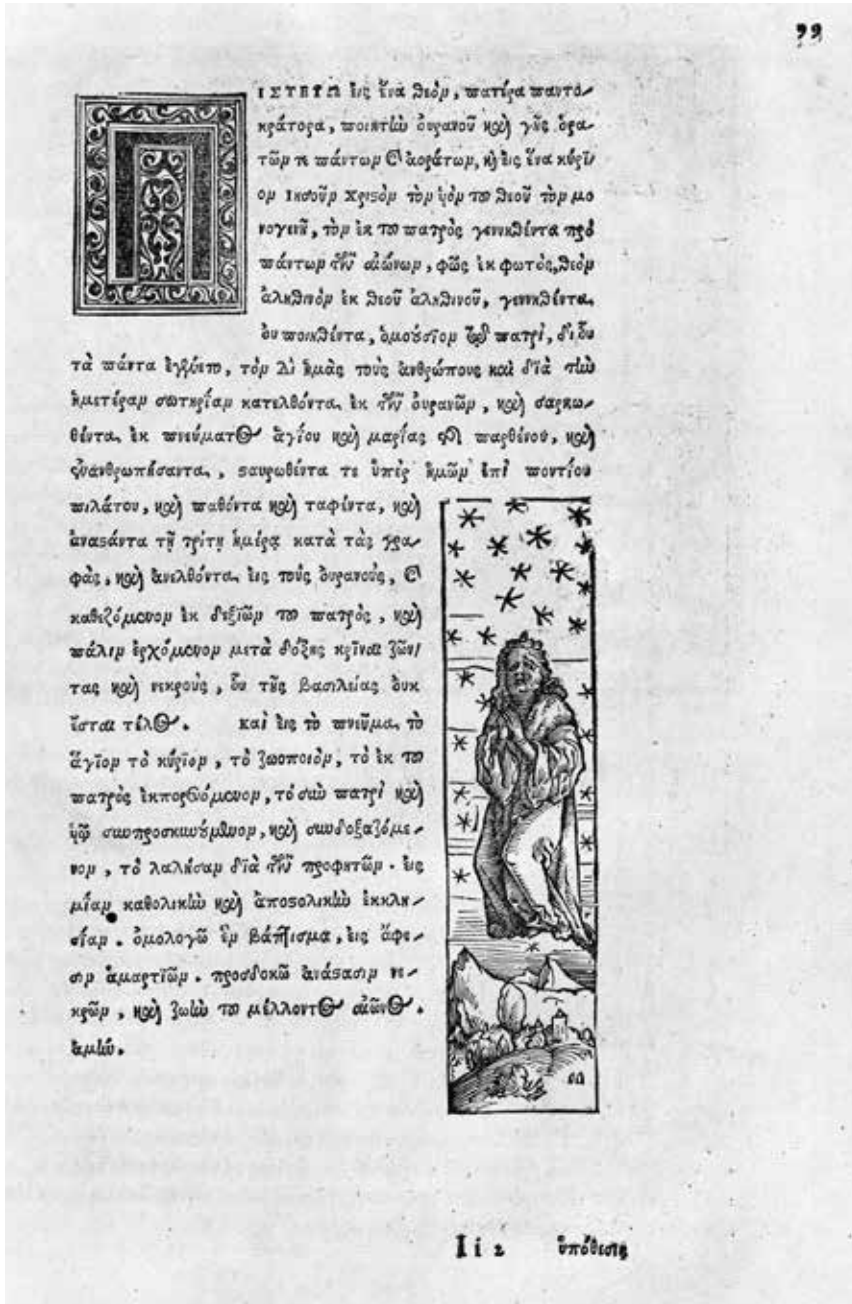 99
ΠΙΣΤΕΥΩ εἰς ἕνα θεὸν, πατέρα παντο-
κράτορα, ποιητὴν οὐρανοῦ καὶ γῆς ὁρα-
τῶν τε πάντων καὶ ἀοράτων, καὶ εἰς ἕνα κύρι-
ον Ιησοῦν Χριστὸν τὸν ὑὸν τοῦ θεοῦ τὸν μο
νογενῆ, τὸν ἐκ τοῦ πατρὸς γεννηθέντα πρὸ
πάντων τῶν αἰώνων, φῶς ἐκ φωτὸς, θεὸν
ἀληθινὸν ἐκ θεοῦ ἀληθινοῦ, γεννηθέντα
οὐ ποιηθέντα, ὁμοούσιον τῷ πατρὶ, δι οὗ
τὰ πάντα ἐγένετο, τὸν δι ἡμᾶς τοὺς ἀνθρώπους καὶ διὰ τὴν
ἡμετέραν σωτηρίαν κατελθόντα ἐκ τῶν οὐρανῶν, καὶ σαρκω-
θέντα ἐκ πνεύματος ἁγίου καὶ μαρίας τῆς παρθένου, καὶ
ἐνανθρωπήσαντα, σταυρωθέντα τε ὑπὲρ ἡμῶν ἐπὶ ποντίου
πιλάτου, καὶ παθόντα καὶ ταφέντα, καὶ
ἀναστάντα τῇ τρίτῃ ἡμέρᾳ κατὰ τὰς γρα-
φὰς, καὶ ἀνελθόντα εἰς τοὺς οὐρανοὺς, καὶ
καθεζόμενον ἐκ δεξιῶν τοῦ πατρὸς, καὶ
πάλιν ἐρχόμενον μετὰ δόξης κρῖναι ζῶν-
τας καὶ νεκροὺς, οὗ τῆς βασιλείας οὐκ
ἔσται τέλος. Καὶ εἰς τὸ πνεῦμα τὸ
ἅγιον τὸ κύριον, τὸ ζωοποιὸν, τὸ ἐκ τοῦ
πατρὸς ἐκπορευόμενον, τὸ σὺν πατρὶ καὶ
ὑῷ συνπροσκυνούμενον, καὶ συνδοξαζόμε-
νον, τὸ λαλῆσαν διὰ τῶν προφητῶν. εἰς
μίαν καθολικὴν καὶ ἀποστολικὴν ἐκκλη-
σίαν. ὁμολογῶ ἓν βάπτισμα, εἰς ἄφε-
σιν ἁμαρτιῶν. προσδοκῶ ἀνάστασιν νε-
κρῶν, καὶ ζωὴν τοῦ μέλλοντος αἰῶνος.
ἀμήν.
Ii 2 ὑπόθεσις